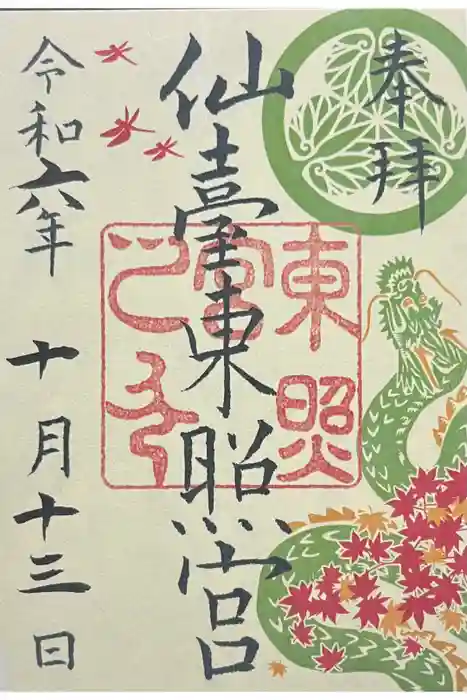 奉拝
仙臺東照宮
令和六年 十月十三日
東照
宮
之印